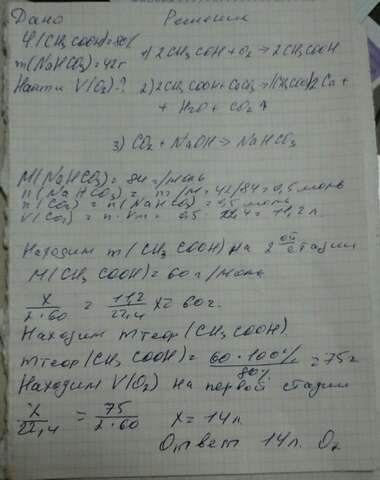 Дано Решение
φ(CH₃COOH)=80%
m(NaHCO₃)=42г 1) 2CH₃COH+O₂→2CH₃COOH
Найти V(O₂)-? 2) 2CH₃COOH+CaCO₃→(CH₃COO)2Ca+
+ H₂O + CO₂↑
3) CO₂ + NaOH → NaHCO₃
M(NaHCO₃)= 84 г/моль
n(NaHCO₃) = m/M=42/84=0,5 моль
n(CO₂) = n(NaHCO₃) = 0,5 моль
V(CO₂) = n·Vm = 0,5 22,4= 11,2 л.
Находим m(CH₃COOH) на 2 ой стадии
M(CH₃COOH)=60 г/моль
x/2·60 = 11,2/22,4 x=60г.
Находим mтеор(CH₃COOH)
mтеор(CH₃COOH)= 60·100%/80% =75г
Находим V(O₂) на первой стадии
x/22,4 = 75/2·60 x=14л.
Ответ 14л. O₂